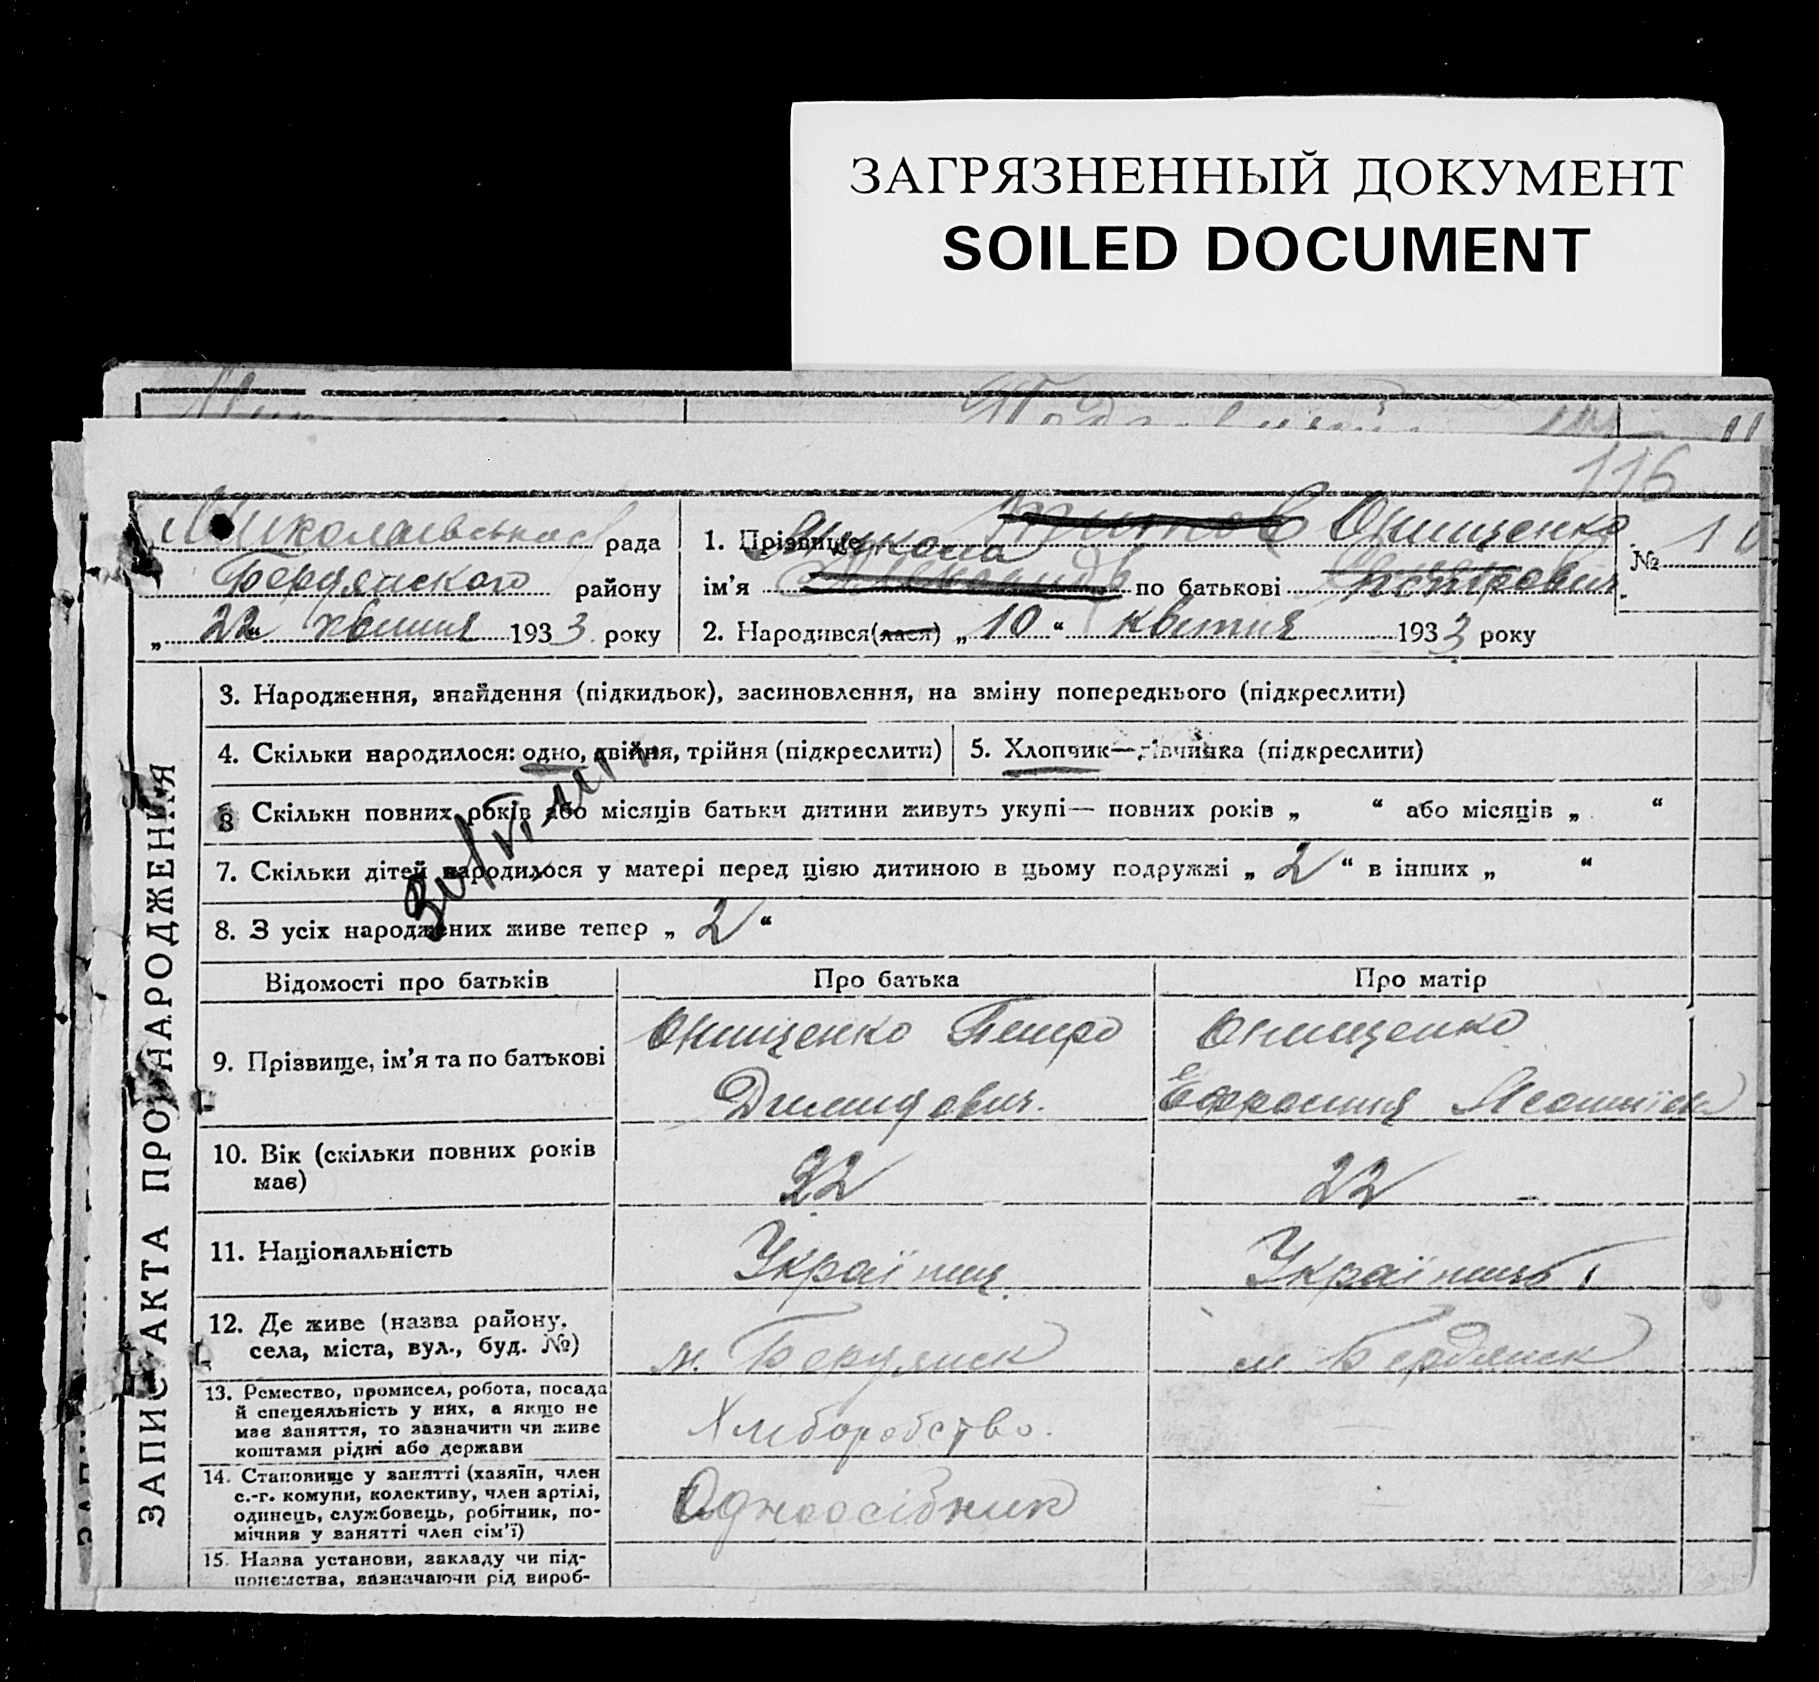 ЗАГРЯЗНЕННЫЙ ДОКУМЕНТ
SOILED DOCUMENT
116
Миколаївська рада
Бердянского району
„ 22 “ квітня 1933 року
1. Прізвище Онищенко
Микола
ім’я по батькові Петрович
2. Народився(лася) „ 10 “ квітня 1933 року
№ 10
ЗАПИС АКТА ПРО НАРОДЖЕННЯ
3. Народження, знайдення (підкидьок), засиновлення, на зміну попереднього (підкреслити)
4. Скільки народилося: одно, двійня, трійня (підкреслити)
5. Хлопчик—дівчинка (підкреслити)
Скільки повних років або місяців батьки дитини живуть укупі— повних років „ “ або місяців „ “
7. Скільки дітей народилося у матері перед цією дитиною в цьому подружжі „ 2 “ в інших „ “
8. З усіх народжених живе тепер „ 2 “
Відомості про батьків
Про батька
Про матір
9. Прізвище, ім’я та по батькові
Онищенко Петро
Онищенко
10. Вік (скільки повних років
має)
22
11. Національність
Українець
12. Де живе (назва району,
села, міста, вул., буд. №)
м. Бердянск
м Бердянск
13. Ремество, промисел, робота, посада
й спецеяльність у них, а якщо не
має заняття, то зазначити чи живе
коштами рідні або держави
Хліборобство.
14. Становище у занятті (хазяїн, член
с.-г. комуни, колективу, член артілі,
одинець, службовець, робітник, по-
мічник у занятті член сім’ї)
Одноосібник
15. Назва установи, закладу чи під-
приємства, зазначаючи рід вироб-